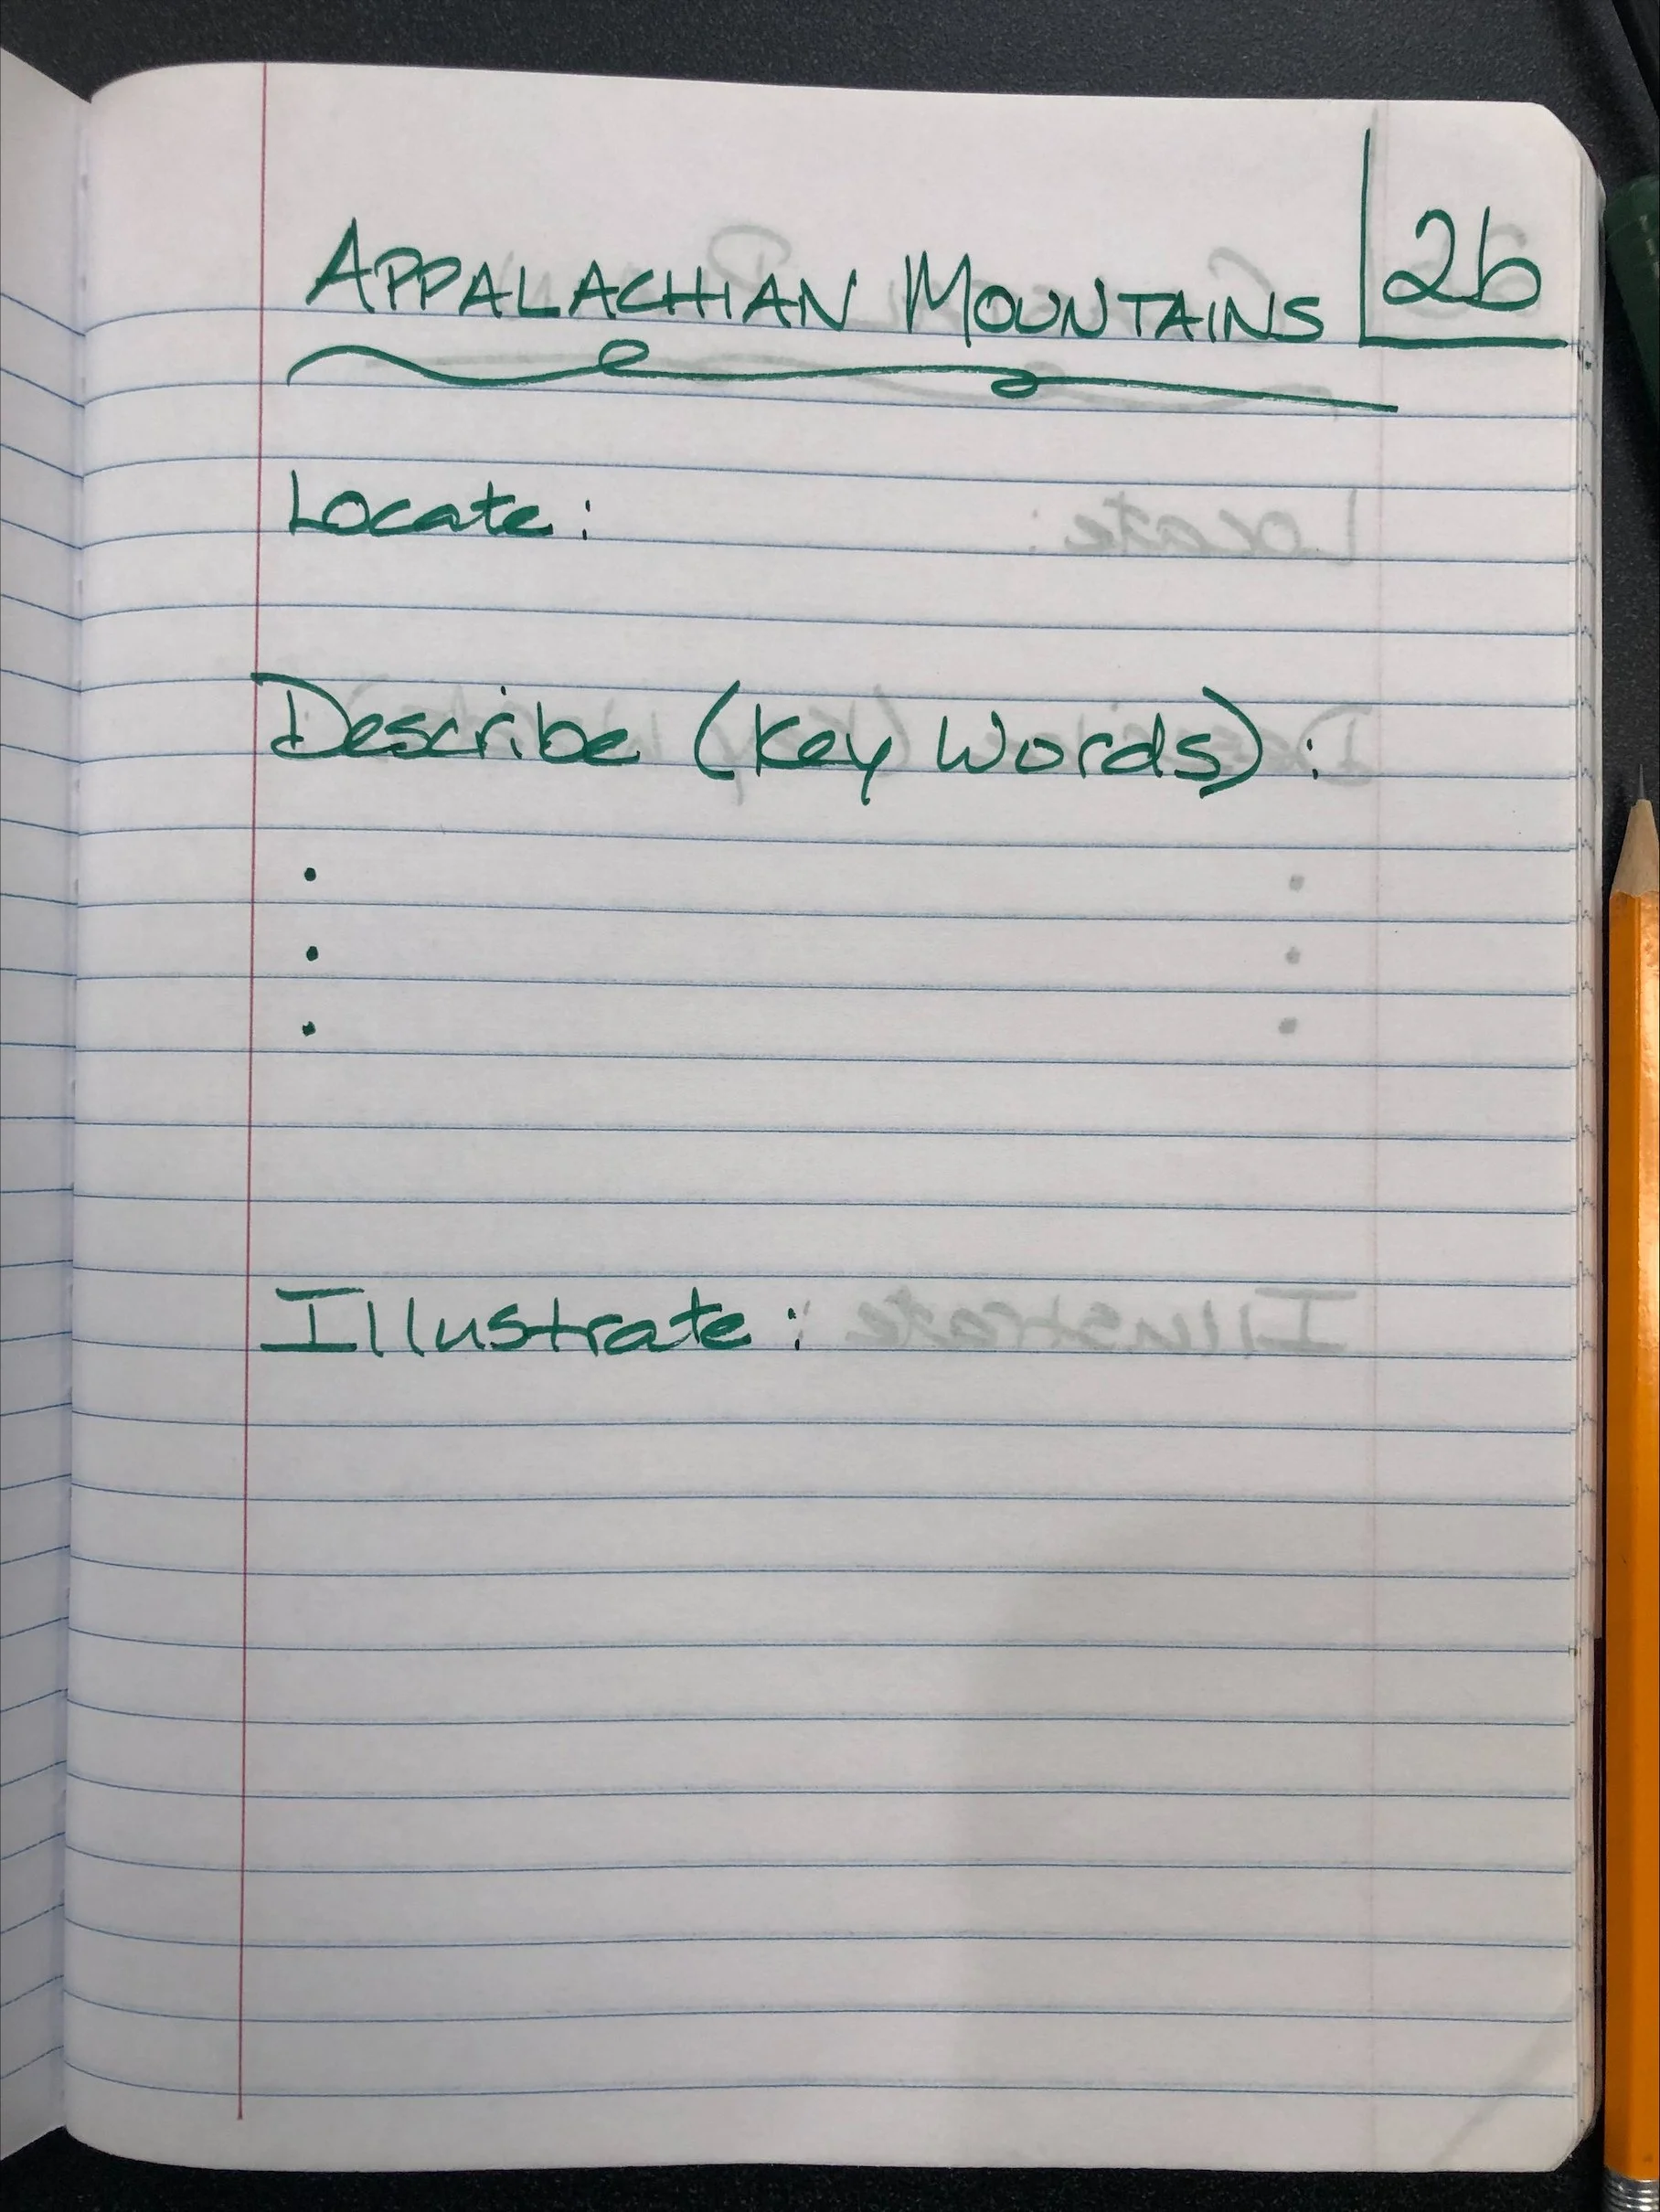 APPALACHIAN MOUNTAINS 26
Locate:
Describe (Key Words):
•
•
•
Illustrate: